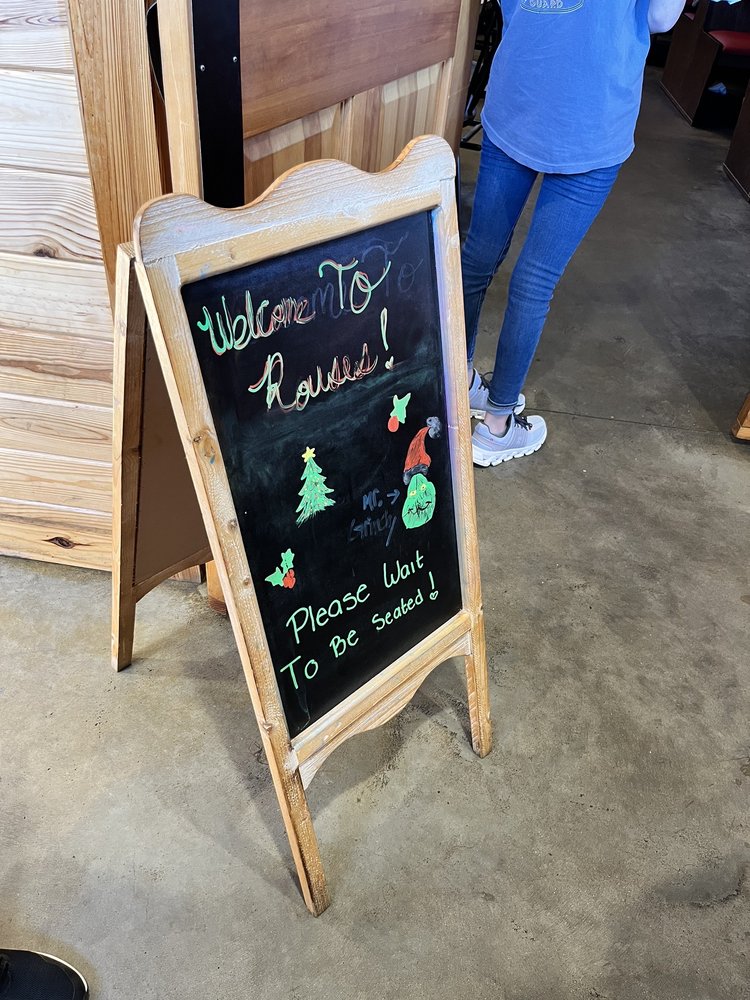 GUARD
Welcome To
Rouses!
Mr.
Please Wait
To Be Seated!